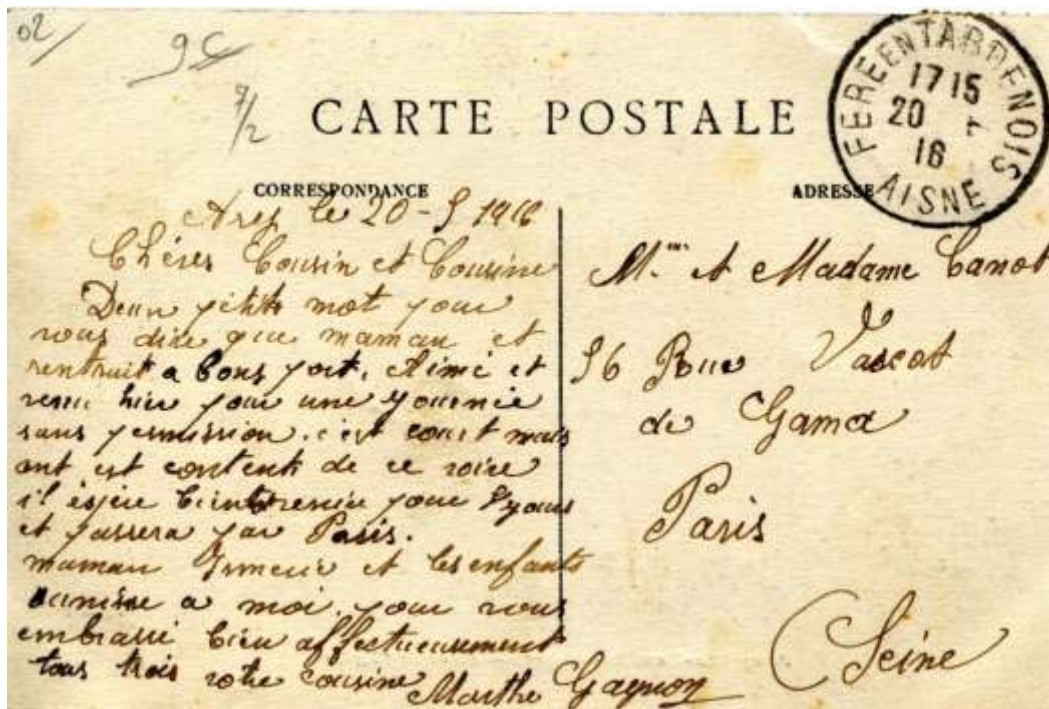 02
9C
7/2
CARTE POSTALE
FERE EN TARDENOIS
17 15
20 7
16
AISNE
CORRESPONDANCE
ADRESSE
le 20-5 1916
Chéres Cousin et Cousine
Deun petits mot pour
vous dire que maman et
rentruit a bons port. Aimé et
venu hier pour une
sans permission. c'est court mais
ont est contents de ce voire
il éspère revenir pour jours
et passera par Paris.
maman et les enfants
a moi pour vous
embrassé bien affectueusement
tous trois votre cousine Marthe Gagnon
M. et Madame Canot
56 Rue Vascot
de Gama
Paris
Seine